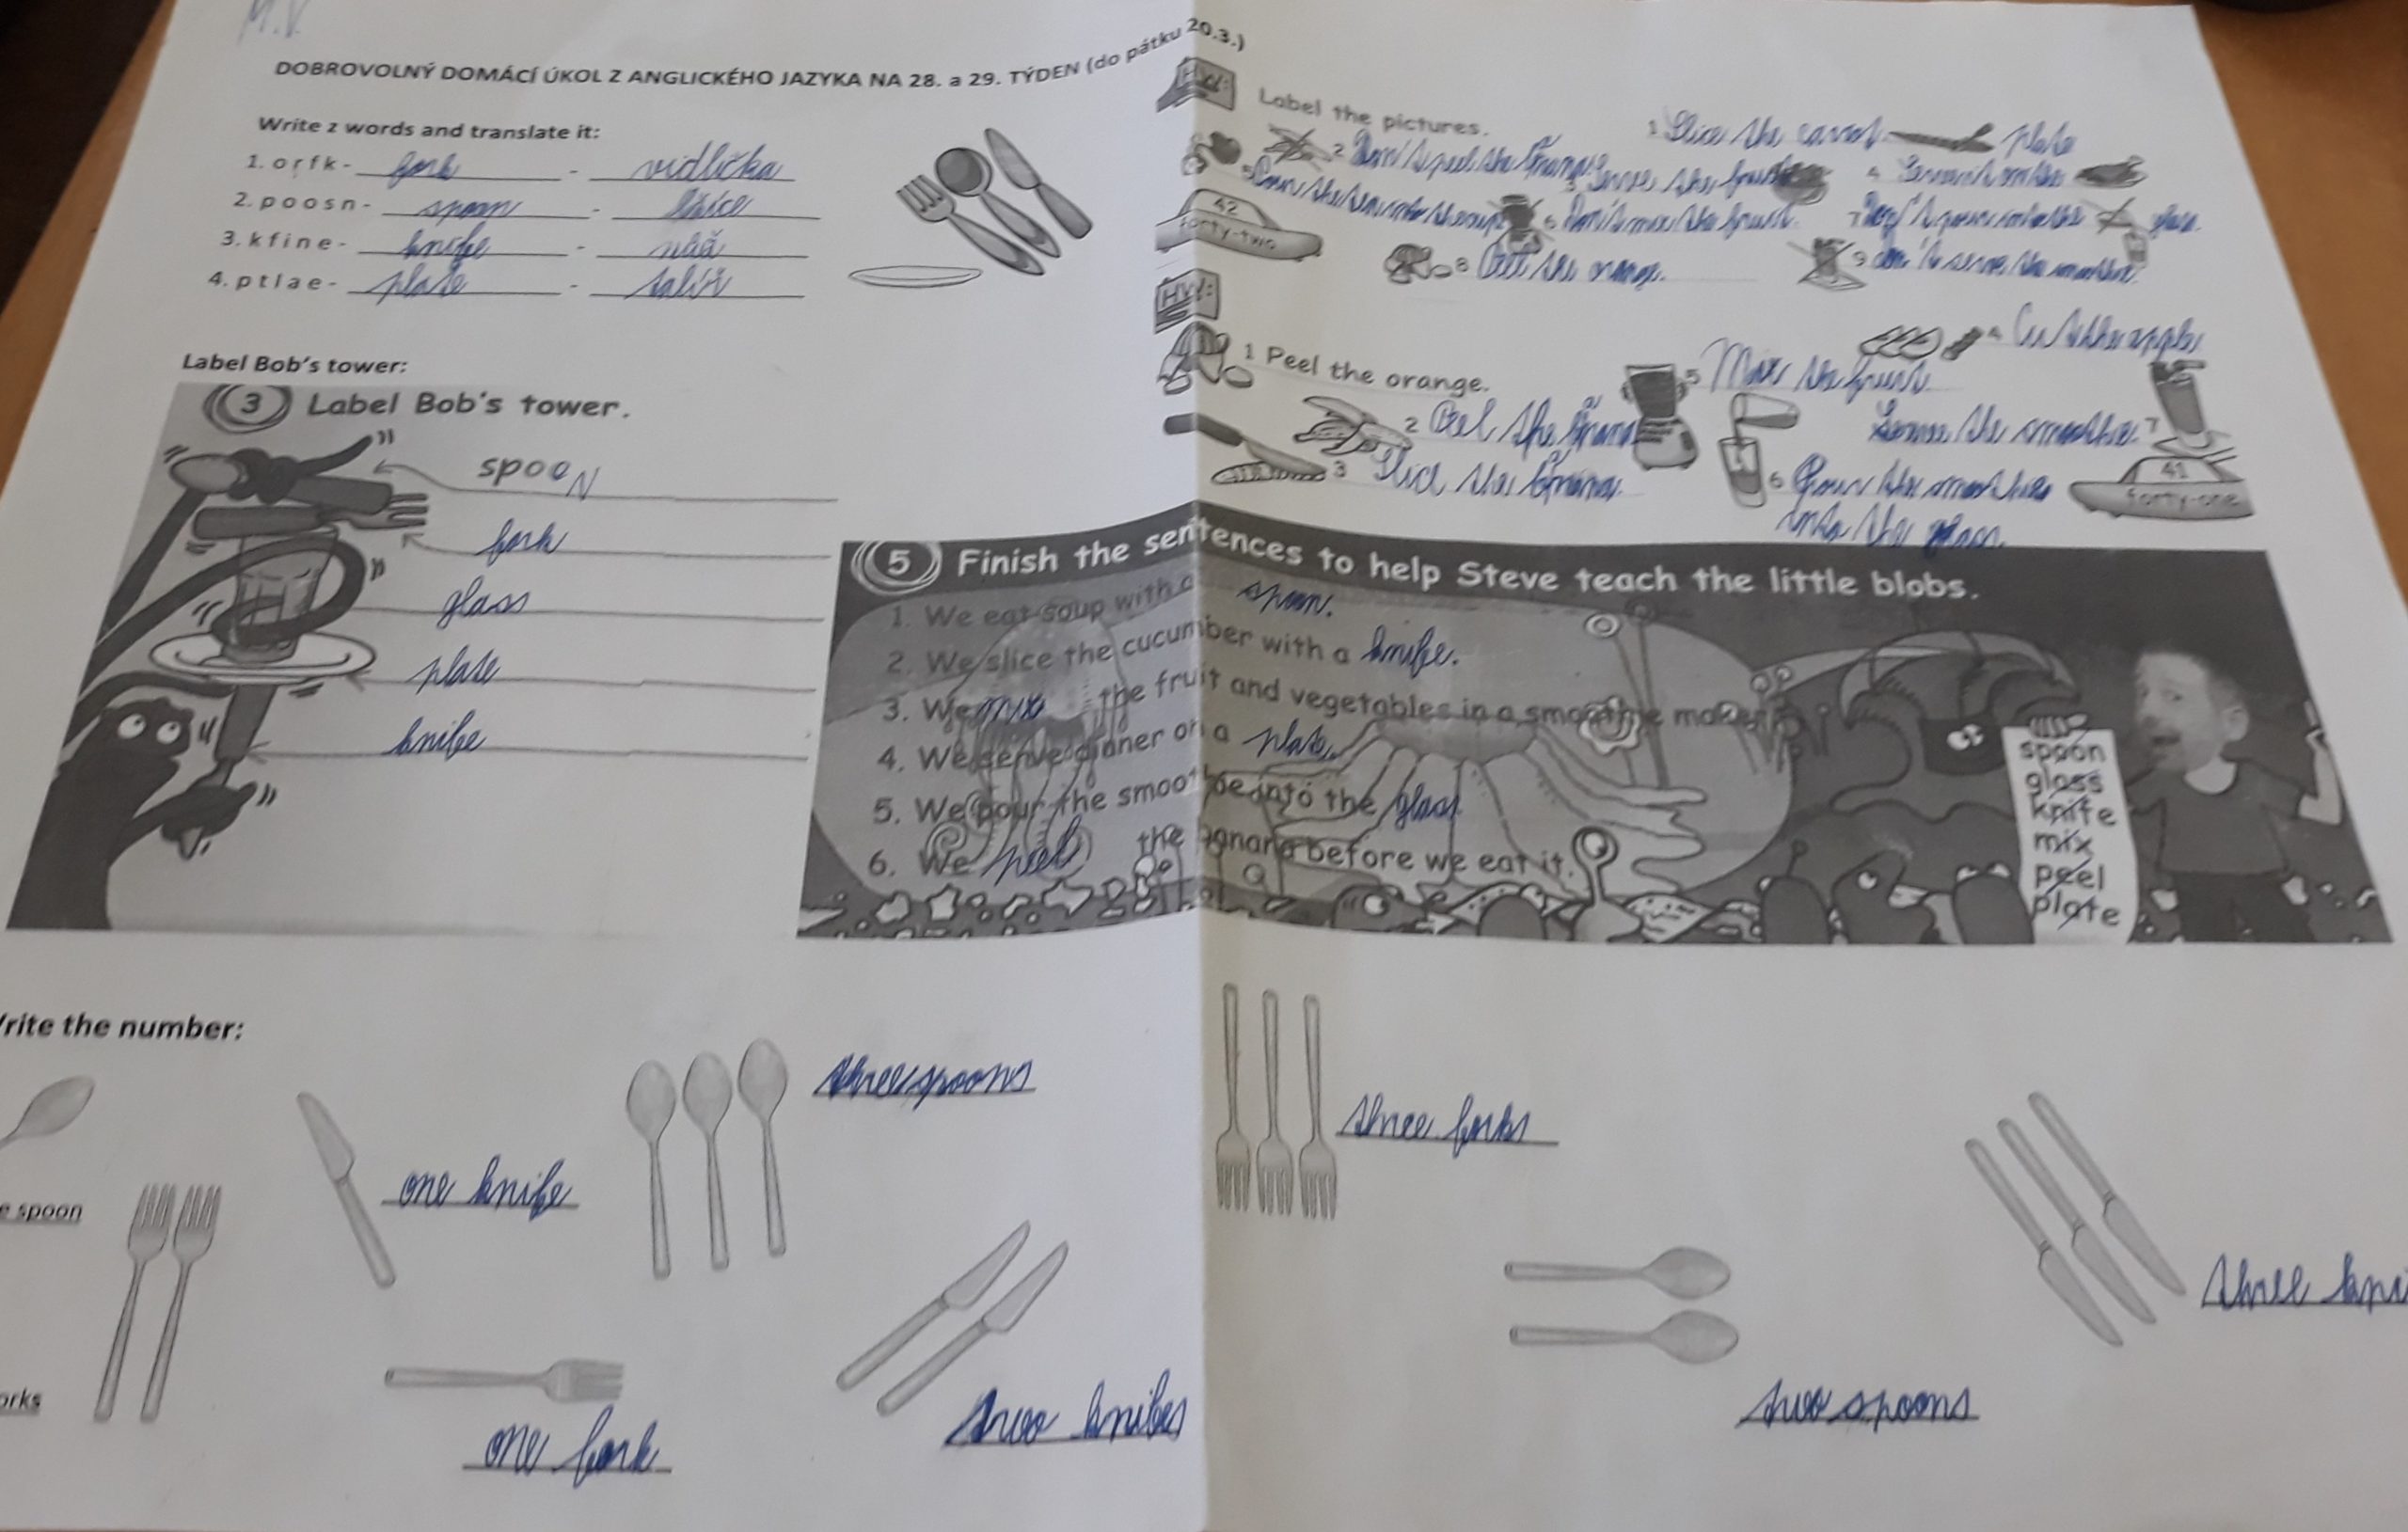 M.V.
DOBROVOLNÝ DOMÁCÍ ÚKOL Z ANGLICKÉHO JAZYKA NA 28. a 29. TÝDEN (do pátku 20.3.)
Write z words and translate it:
1. o r f k - fork - vidlička
2. p o o s n - spoon - lžíce
3. k f i n e - knife - nůž
4. p t l a e - plate - talíř
Label Bob's tower:
3 Label Bob's tower.
spooN
fork
glass
plate
knife
HW:
Label the pictures.
1 Slice the carrot.
plate
2 Don't peel the
3 Serve the fruit
4
5 Pour the
42
forty-two
6 Don't mix the fruit.
7 Don't pour
glass.
8 Peel the orange.
9 Don't serve the smoothie.
HW:
1 Peel the orange.
2 Peel the
3 Slice the
4 Cut the apple
5 Mix the fruit.
6 Pour the smoothie
into the glass.
Serve the smoothie. 7
41
forty-one
5 Finish the sentences to help Steve teach the little blobs.
1. We eat soup with a spoon.
2. We slice the cucumber with a knife.
3. We mix the fruit and vegetables in a smoothie maker.
4. We serve dinner on a plate.
5. We pour the smoothie into the glass
6. We peel the banana before we eat it.
spoon
glass
knife
mix
peel
plate
Write the number:
e spoon
one knife
three spoons
three forks
three kni
orks
one fork
two knifes
two spoons